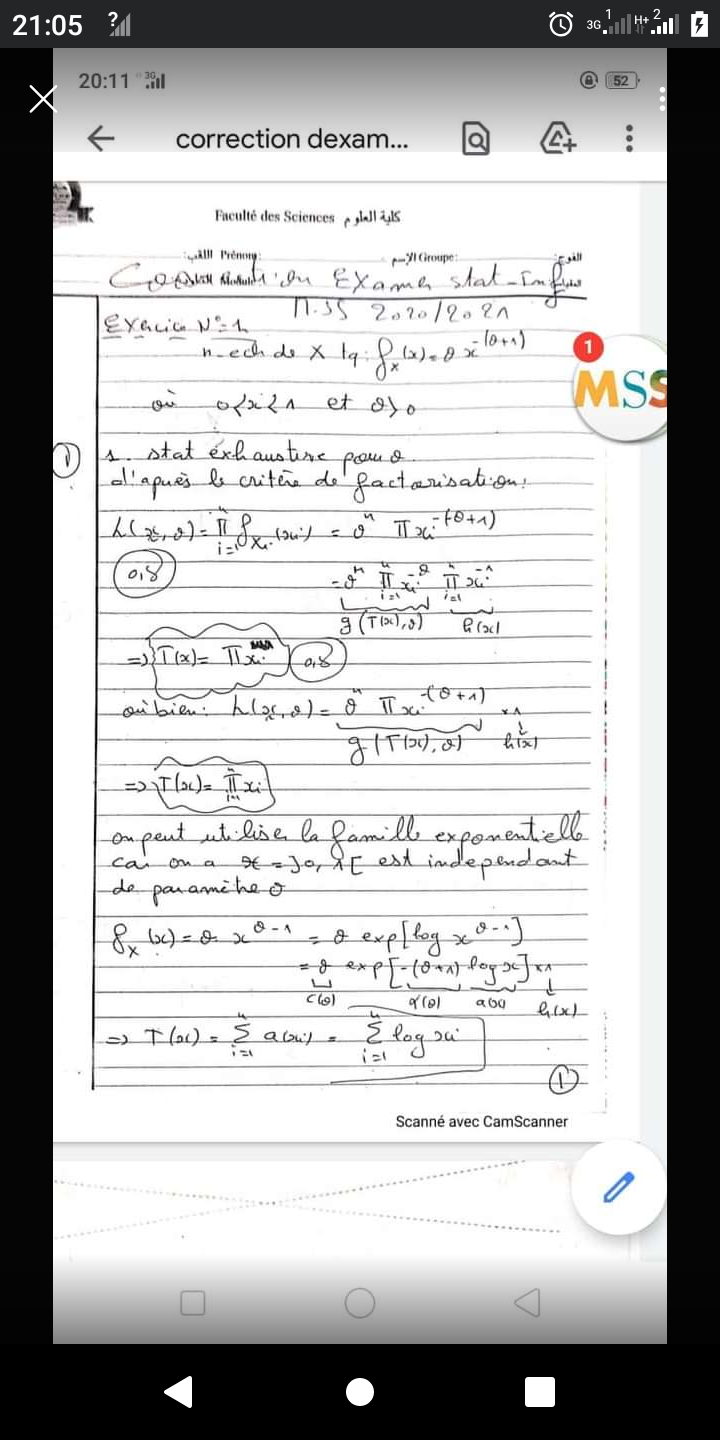 21:05 ? 3G 1 H+ 2
20:11 3G 52
correction dexam...
Faculté des Sciences كلية العلوم
اللقب: Prénom: الإسم Groupe: الفوج
Examen stat-Inf
M.SS 2020/2021
Exercice N°=1
n-ech de X tq: f_x(x)=θ x^-(θ+1)
1
MSS
où 0<x<1 et θ>0
1 1. stat exhaustive pour θ
d'après le critère de factorisation:
L(x,θ)= π_{i=1}^n f_{Xi}(xi) = θ^n π xi^-(θ+1)
0,5 =θ^n π_{i=1}^n xi^-θ π_{i=1}^n xi^-1
g(T(x),θ) h(x)
=> T(x)= π xi 0,5
où bien: L(x,θ)= θ^n π xi^-(θ+1) ×1
g(T(x),θ) h(x)
=> T(x)= π_{i=1}^n xi
on peut utiliser la famille exponentielle
car on a X =]0,1[ est independant
de paramètre θ
f_x(x)=θ x^θ-1 = θ exp[log x^θ-1]
=θ exp[-(θ+1) log x] ×1
c(θ) α(θ) a(x) h(x)
=> T(x) = Σ_{i=1}^n a(xi) = Σ_{i=1}^n log xi
1
Scanné avec CamScanner